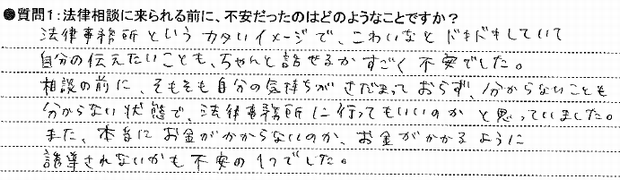 ●質問1:法律相談に来られる前に、不安だったのはどのようなことですか?
法律事務所というカタいイメージで、こわいなとドキドキしていて
自分の伝えたいことも、ちゃんと話せるかすごく不安でした。
相談の前に、そもそも自分の気持ちがさだまっておらず、分からないことも
分からない状態で、法律事務所に行ってもいいのかと思っていました。
また、本当にお金がかからないのか、お金がかかるように
誘導されないかも不安の1つでした。